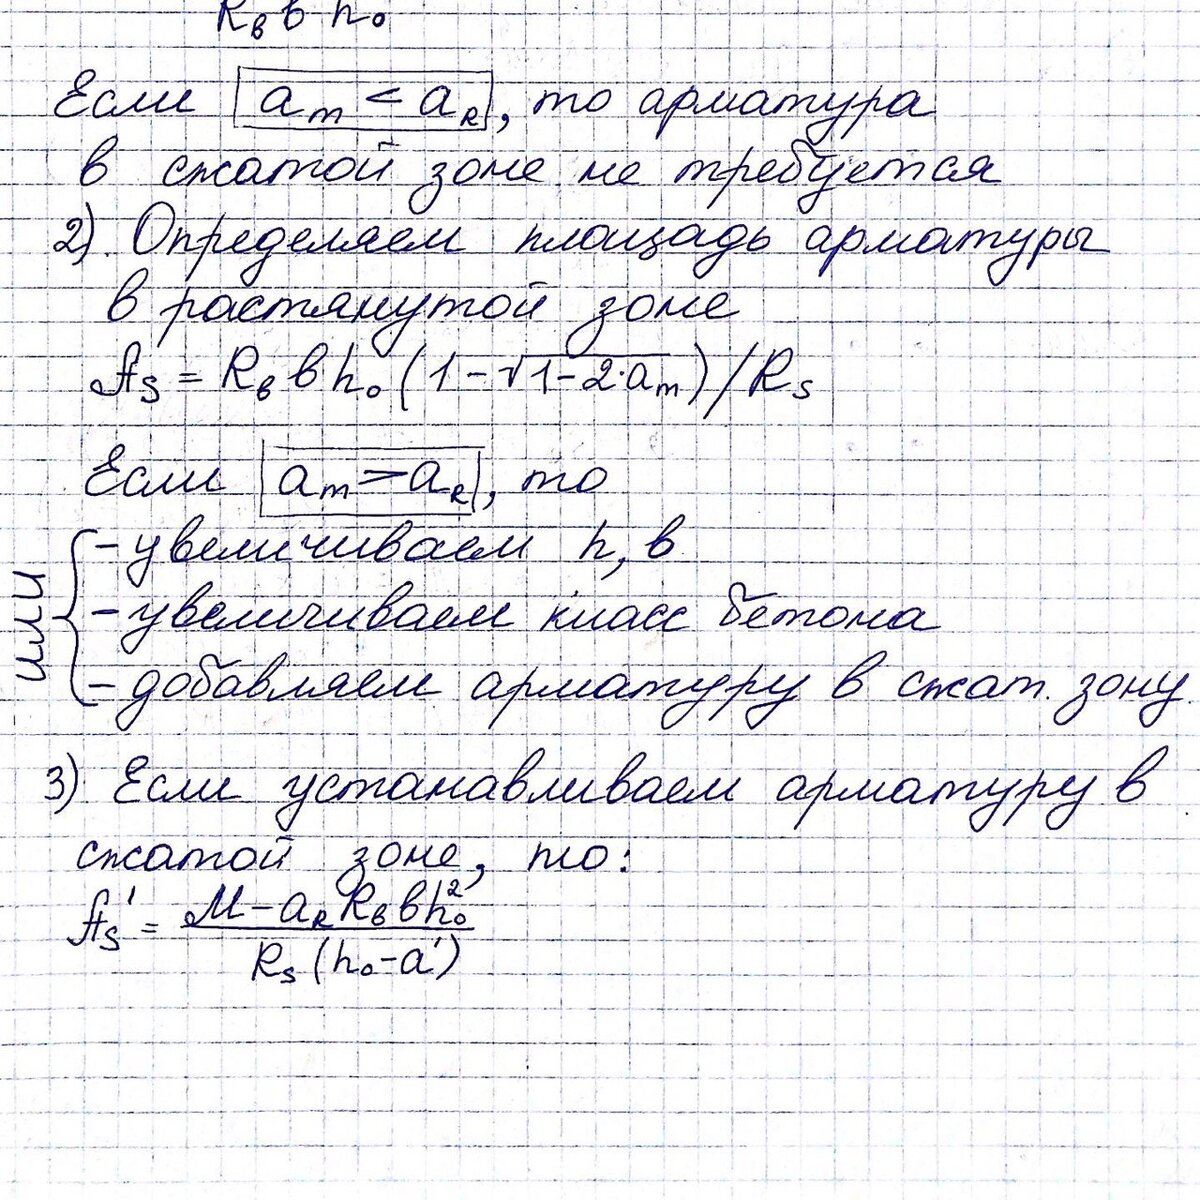 R_в в h_0
Если a_m < a_R, то арматура
в сжатой зоне не требуется
2) Определяем площадь арматуры
в растянутой зоне
A_s = R_в в h_0 (1-√1-2·a_m) / R_s
Если a_m > a_R, то
или
- увеличиваем h, в
- увеличиваем класс бетона
- добавляем арматуру в сжат. зону.
3) Если устанавливаем арматуру в
сжатой зоне, то:
A_s' = M - a_R R_в в h_0^2
R_s (h_0 - a')